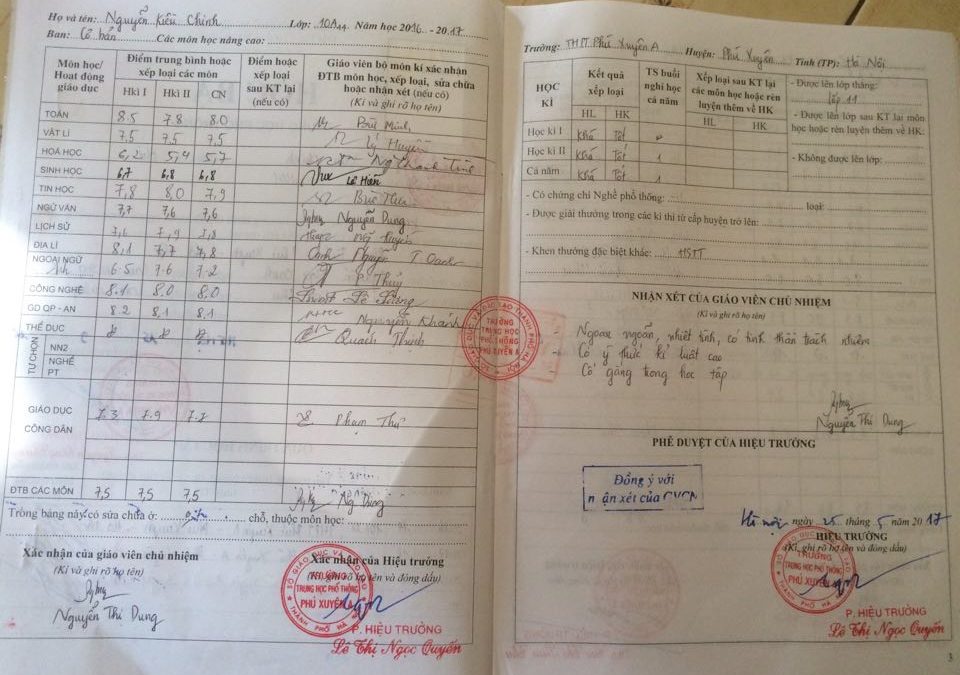 Họ và tên: Nguyễn Kiều Chinh Lớp: 10A4. Năm học 2016 - 2017
Ban: Cơ bản Các môn học nâng cao:
Môn học/ Hoạt động giáo dục
Điểm trung bình hoặc xếp loại các môn
Hkì I Hkì II CN
Điểm hoặc xếp loại sau KT lại (nếu có)
Giáo viên bộ môn kí xác nhận ĐTB môn học, xếp loại, sửa chữa hoặc nhận xét (nếu có)
(Kí và ghi rõ họ tên)
TOÁN 8.5 7.8 8.0 Bùi Minh
VẬT LÍ 7,5 7,5 7,5 Lý Huyền
HOÁ HỌC 6,2 5,4 5,7 Ng Thanh Tình
SINH HỌC 6,7 6,8 6,8 Lê Hiền
TIN HỌC 7,8 8,0 7,9
NGỮ VĂN 7,7 7,6 7,6 Nguyễn Dung
LỊCH SỬ 7,6 7,9 7,8
ĐỊA LÍ 8,1 7,7 7,8 Nguyễn T Oanh
NGOẠI NGỮ
Anh 6.5 7.6 7.2 P Thủy
CÔNG NGHỆ 8.1 8.0 8.0
GD QP - AN 8.2 8,1 8,1 Nguyễn Khánh
THỂ DỤC Quách Thinh
TỰ CHỌN
NN2
NGHỀ PT
GIÁO DỤC CÔNG DÂN 7.3 7.9 7.7 Phạm Thư
ĐTB CÁC MÔN 7,5 7,5 7,5 Ng Dung
Trong bảng này có sửa chữa ở: chỗ, thuộc môn học:
Xác nhận của giáo viên chủ nhiệm
(Kí và ghi rõ họ tên)
Nguyễn Thị Dung
Xác nhận của Hiệu trưởng
(Kí, ghi rõ họ tên và đóng dấu)
SỞ GIÁO DỤC VÀ ĐÀO TẠO
TRƯỜNG
TRUNG HỌC PHỔ THÔNG
PHÚ XUYÊN A
THÀNH PHỐ HÀ NỘI
P. HIỆU TRƯỞNG
Lê Thị Ngọc Quyến
Trường: THPT Phú Xuyên A Huyện: Phú Xuyên Tỉnh (TP): Hà Nội
HỌC KÌ
Kết quả xếp loại
HL HK
TS buổi nghỉ học cả năm
Xếp loại sau KT lại các môn học hoặc rèn luyện thêm về HK
HL HK
Học kì I Khá Tốt 0
Học kì II Khá Tốt 1
Cả năm Khá Tốt 1
- Được lên lớp thẳng:
lớp 11
- Được lên lớp sau KT lại môn học hoặc rèn luyện thêm về HK:
- Không được lên lớp:
- Có chứng chỉ Nghề phổ thông: loại:
- Được giải thưởng trong các kì thi từ cấp huyện trở lên:
- Khen thưởng đặc biệt khác: HSTT
NHẬN XÉT CỦA GIÁO VIÊN CHỦ NHIỆM
(Kí và ghi rõ họ tên)
Ngoan ngoãn, nhiệt tình, có tinh thần trách nhiệm
Có ý thức kỉ luật cao
Cố gắng trong học tập
Nguyễn Thị Dung
SỞ GIÁO DỤC VÀ ĐÀO TẠO THÀNH PHỐ HÀ NỘI
TRƯỜNG
TRUNG HỌC
PHỔ THÔNG
PHÚ XUYÊN A
PHÊ DUYỆT CỦA HIỆU TRƯỞNG
Đồng ý với
nhận xét của GVCN
Hà nội, ngày 25 tháng 5 năm 2017
HIỆU TRƯỞNG
(Kí, ghi rõ họ tên và đóng dấu)
TRƯỜNG
TRUNG HỌC PHỔ THÔNG
PHÚ XUYÊN A
P. HIỆU TRƯỞNG
Lê Thị Ngọc Quyến
3